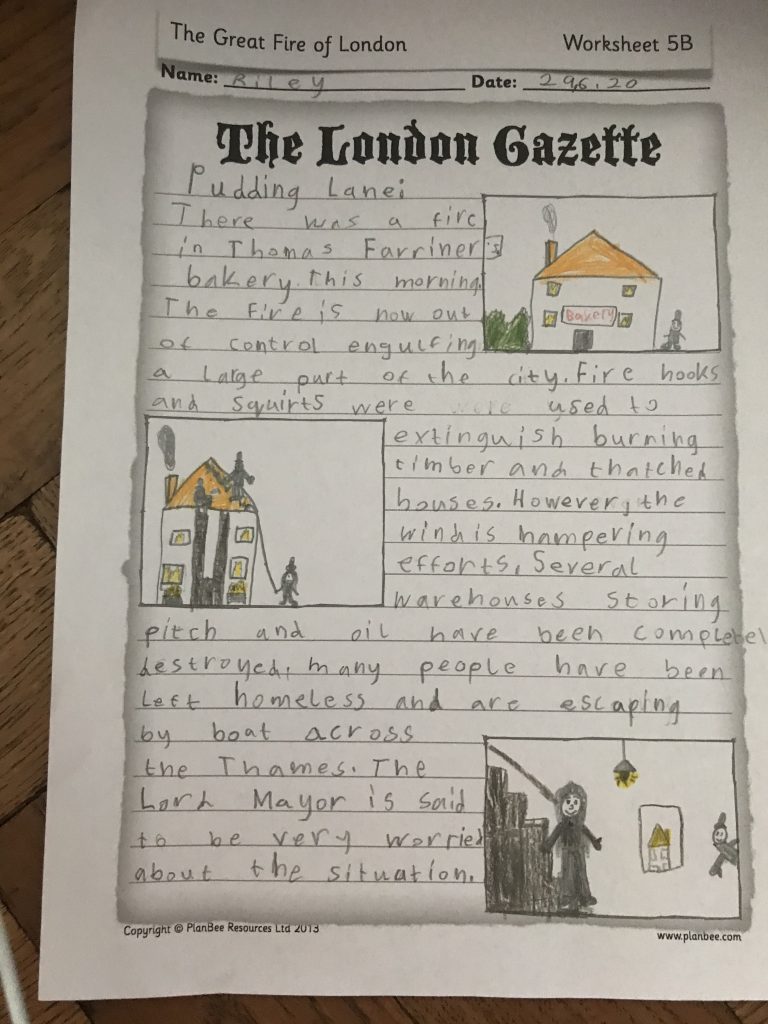 The Great Fire of London
Worksheet 5B
Name: Riley
Date: 29.6.20
The London Gazette
Pudding Lane:
There was a fire
in Thomas Farriner's
bakery. This morning.
The fire is now out
of control engulfing
Bakery
a large part of the city. Fire hooks
and squirts were were used to
extinguish burning
timber and thatched
houses. However, the
wind is hampering
efforts. Several
warehouses storing
pitch and oil have been completel
destroyed, many people have been
left homeless and are escaping
by boat across
the Thames. The
Lord Mayor is said
to be very worried
about the situation.
Copyright © PlanBee Resources Ltd 2013
www.planbee.com